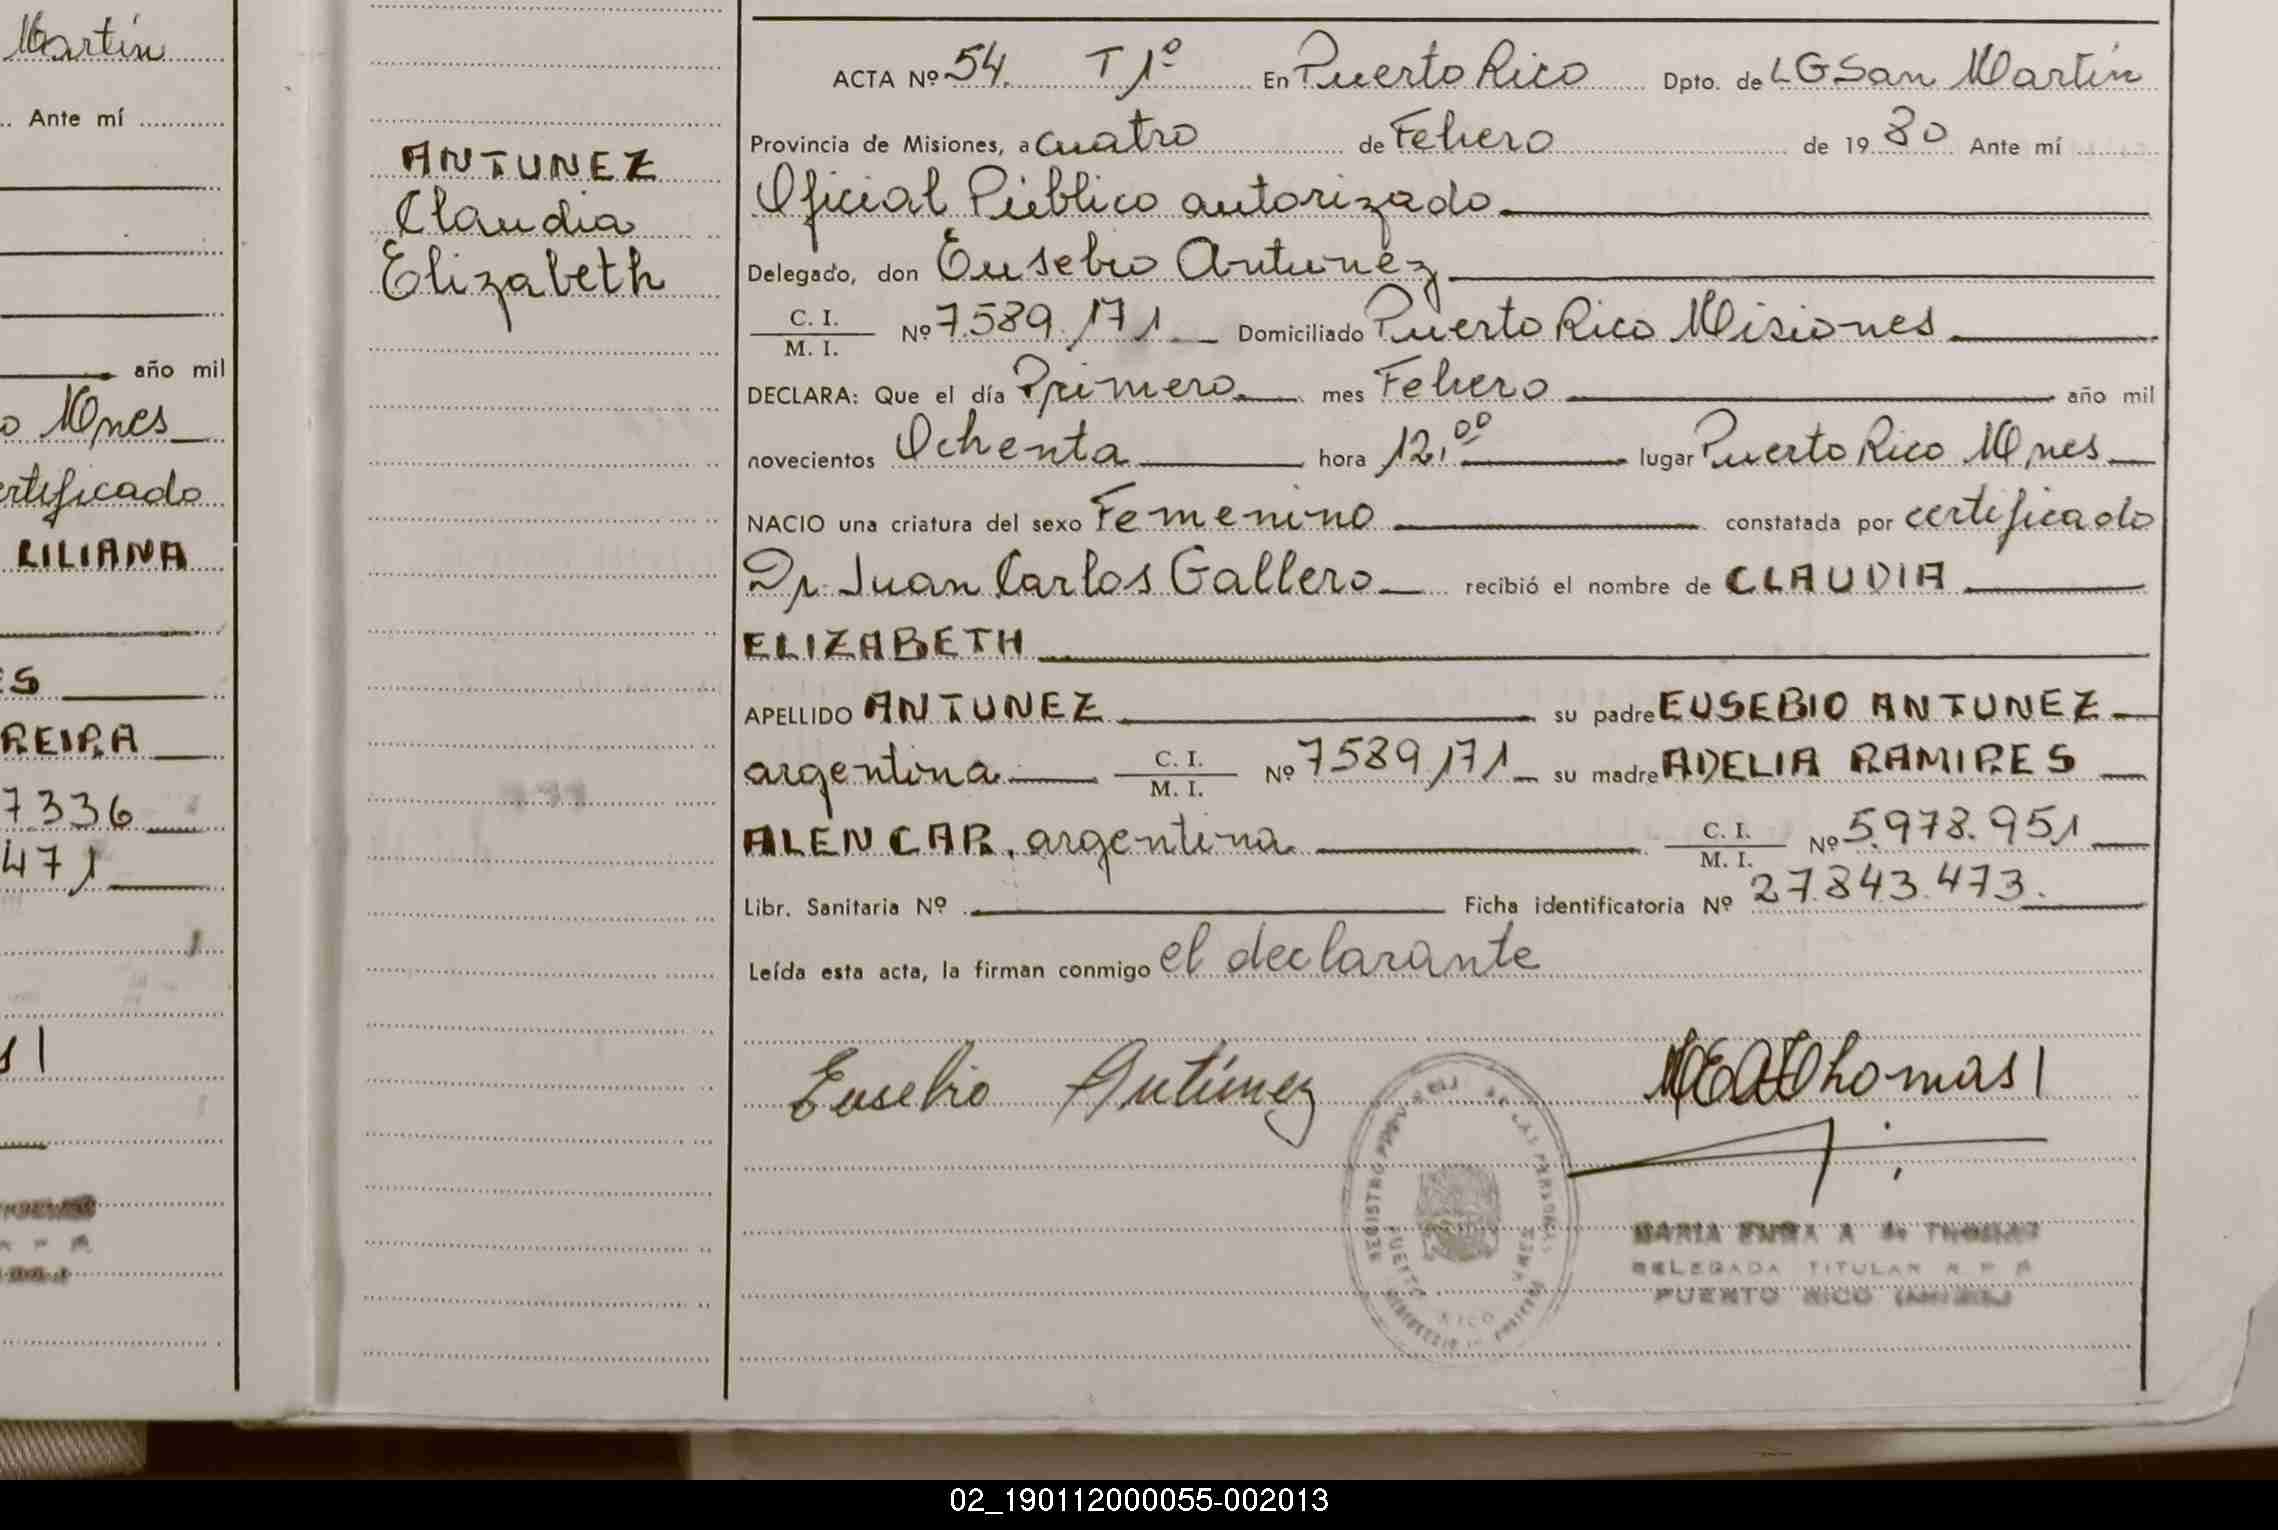 Martín
Ante mí
año mil
o Mnes
ertificado
LILIANA
ES
REIRA
7.336
471
ANTUNEZ
Claudia
Elizabeth
ACTA Nº 54. T 1º En Puerto Rico Dpto. de LGSan Martín
Provincia de Misiones, a cuatro de Febrero de 19 80 Ante mí
Oficial Público autorizado
Delegado, don Eusebio Antunez
C. I.
M. I. Nº 7.589.171 Domiciliado Puerto Rico Misiones
DECLARA: Que el día Primero mes Febrero año mil
novecientos Ochenta hora 12,00 lugar Puerto Rico Mnes
NACIO una criatura del sexo Femenino constatada por certificado
Dr. Juan Carlos Gallero recibió el nombre de CLAUDIA
ELIZABETH
APELLIDO ANTUNEZ su padre EUSEBIO ANTUNEZ
argentina C. I. M. I. Nº 7589171 su madre ADELIA RAMIRES
ALENCAR, argentina C. I. M. I. Nº 5.978.951
Libr. Sanitaria Nº Ficha identificatoria Nº 27.843.473.
Leída esta acta, la firman conmigo el declarante
Eusebio Antúnez
MEAThomas
MARIA A de THOMAS
DELEGADA TITULAR R P P
PUERTO RICO
02_190112000055-002013